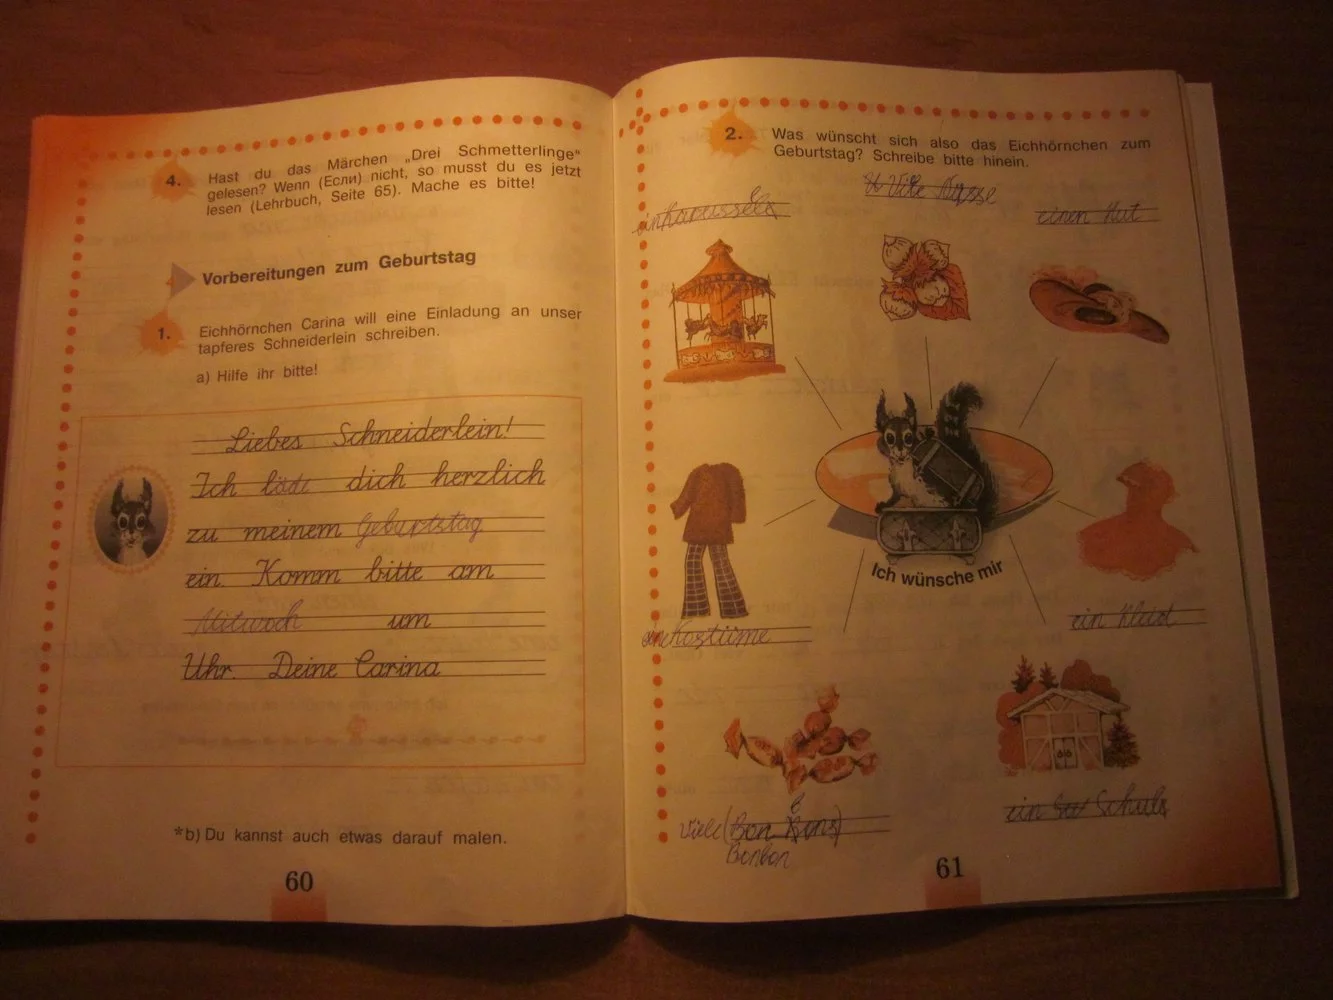 4. Hast du das Märchen „Drei Schmetterlinge“
gelesen? Wenn (Если) nicht, so musst du es jetzt
lesen (Lehrbuch, Seite 65). Mache es bitte!
4 Vorbereitungen zum Geburtstag
1. Eichhörnchen Carina will eine Einladung an unser
tapferes Schneiderlein schreiben.
a) Hilfe ihr bitte!
Liebes Schneiderlein!
Ich läde dich herzlich
zu meinem Geburtstag
ein. Komm bitte am
Mitwoch um
Uhr. Deine Carina
*b) Du kannst auch etwas darauf malen.
60
2. Was wünscht sich also das Eichhörnchen zum
Geburtstag? Schreibe bitte hinein.
Viele
einen Hut
Ich wünsche mir
Kostüme
ein Kleid
viele
Bonbon
ein
61